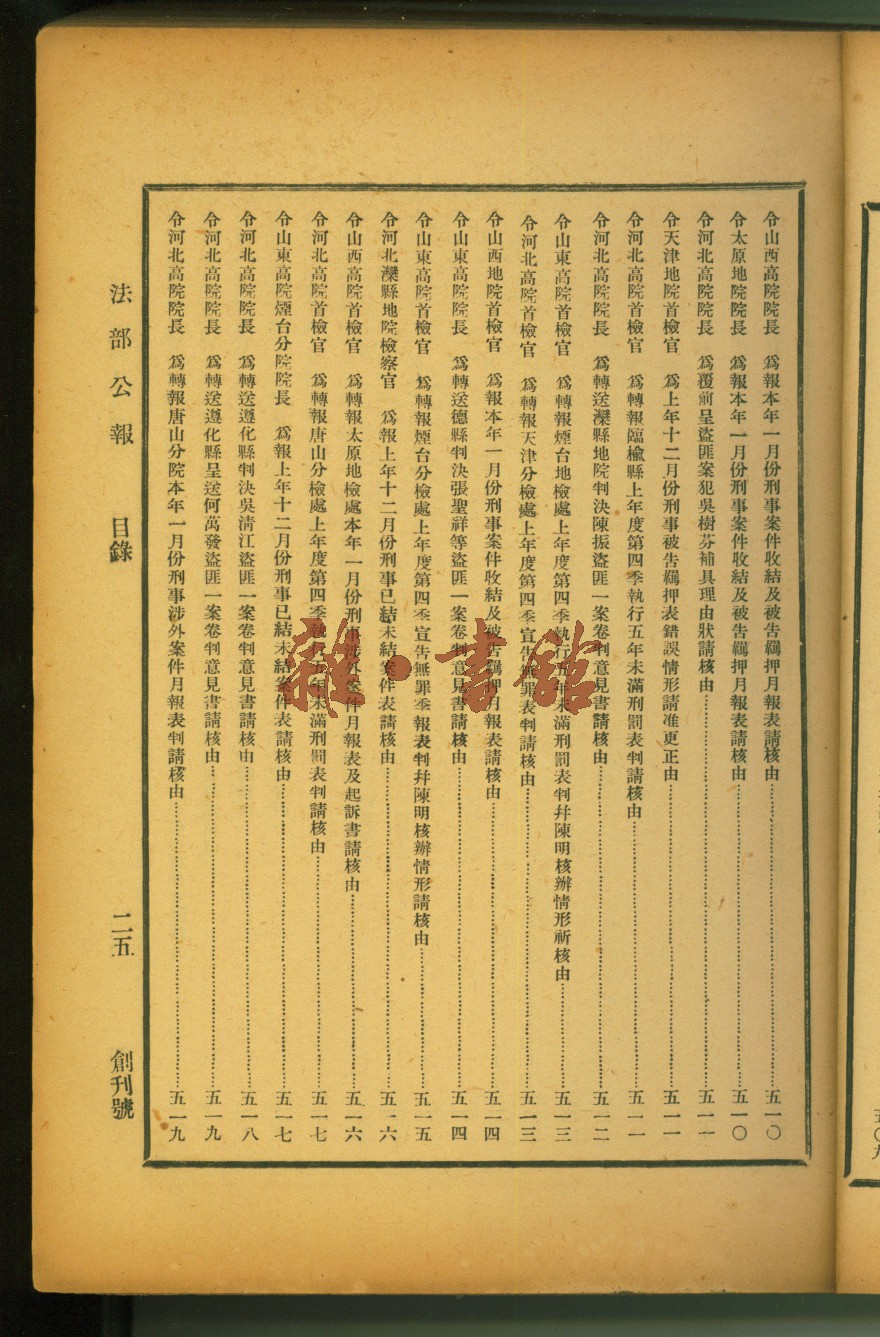 令山西高院院長　爲報本年一月份刑事案件收結及被告羈押月報表請核由……五一〇
令太原地院院長　爲報本年一月份刑事案件收結及被告羈押月報表請核由……五一〇
令河北高院院長　爲覆前呈盜匪案犯吳樹芬補具理由狀請核由……五一一
令天津地院首檢官　爲上年十二月份刑事被告羈押表錯誤情形請准更正由……五一一
令河北高院首檢官　爲轉報臨楡縣上年度第四季執行五年未滿刑罰表判請核由……五一一
令河北高院院長　爲轉送灤縣地院判決陳振盜匪一案卷判意見書請核由……五一二
令山東高院首檢官　爲轉報煙台地檢處上年度第四季執行五年未滿刑罰表判幷陳明核辦情形祈核由……五一三
令河北高院首檢官　爲轉報天津分檢處上年度第四季宣告無罪表判請核由……五一三
令山西地院首檢官　爲報本年一月份刑事案件收結及被告羈押月報表請核由……五一四
令山東高院院長　爲轉送德縣判決張聖祥等盜匪一案卷判意見書請核由……五一四
令山東高院首檢官　爲轉報煙台分檢處上年度第四季宣告無罪季報表判幷陳明核辦情形請核由……五一五
令河北灤縣地院檢察官　爲報上年十二月份刑事已結未結案件表請核由……五一六
令山西高院首檢官　爲轉報太原地檢處本年一月份刑事涉外案件月報表及起訴書請核由……五一六
令河北高院首檢官　爲轉報唐山分檢處上年度第四季執行五年未滿刑罰表判請核由……五一七
令山東高院煙台分院院長　爲報上年十二月份刑事已結未結案件表請核由……五一七
令河北高院院長　爲轉送遵化縣判決吳清江盜匪一案卷判意見書請核由……五一八
令河北高院院長　爲轉送遵化縣呈送何萬發盜匪一案卷判意見書請核由……五一九
令河北高院院長　爲轉報唐山分院本年一月份刑事涉外案件月報表判請核由……五一九
法部公報　目錄　二五　創刊號
五〇九